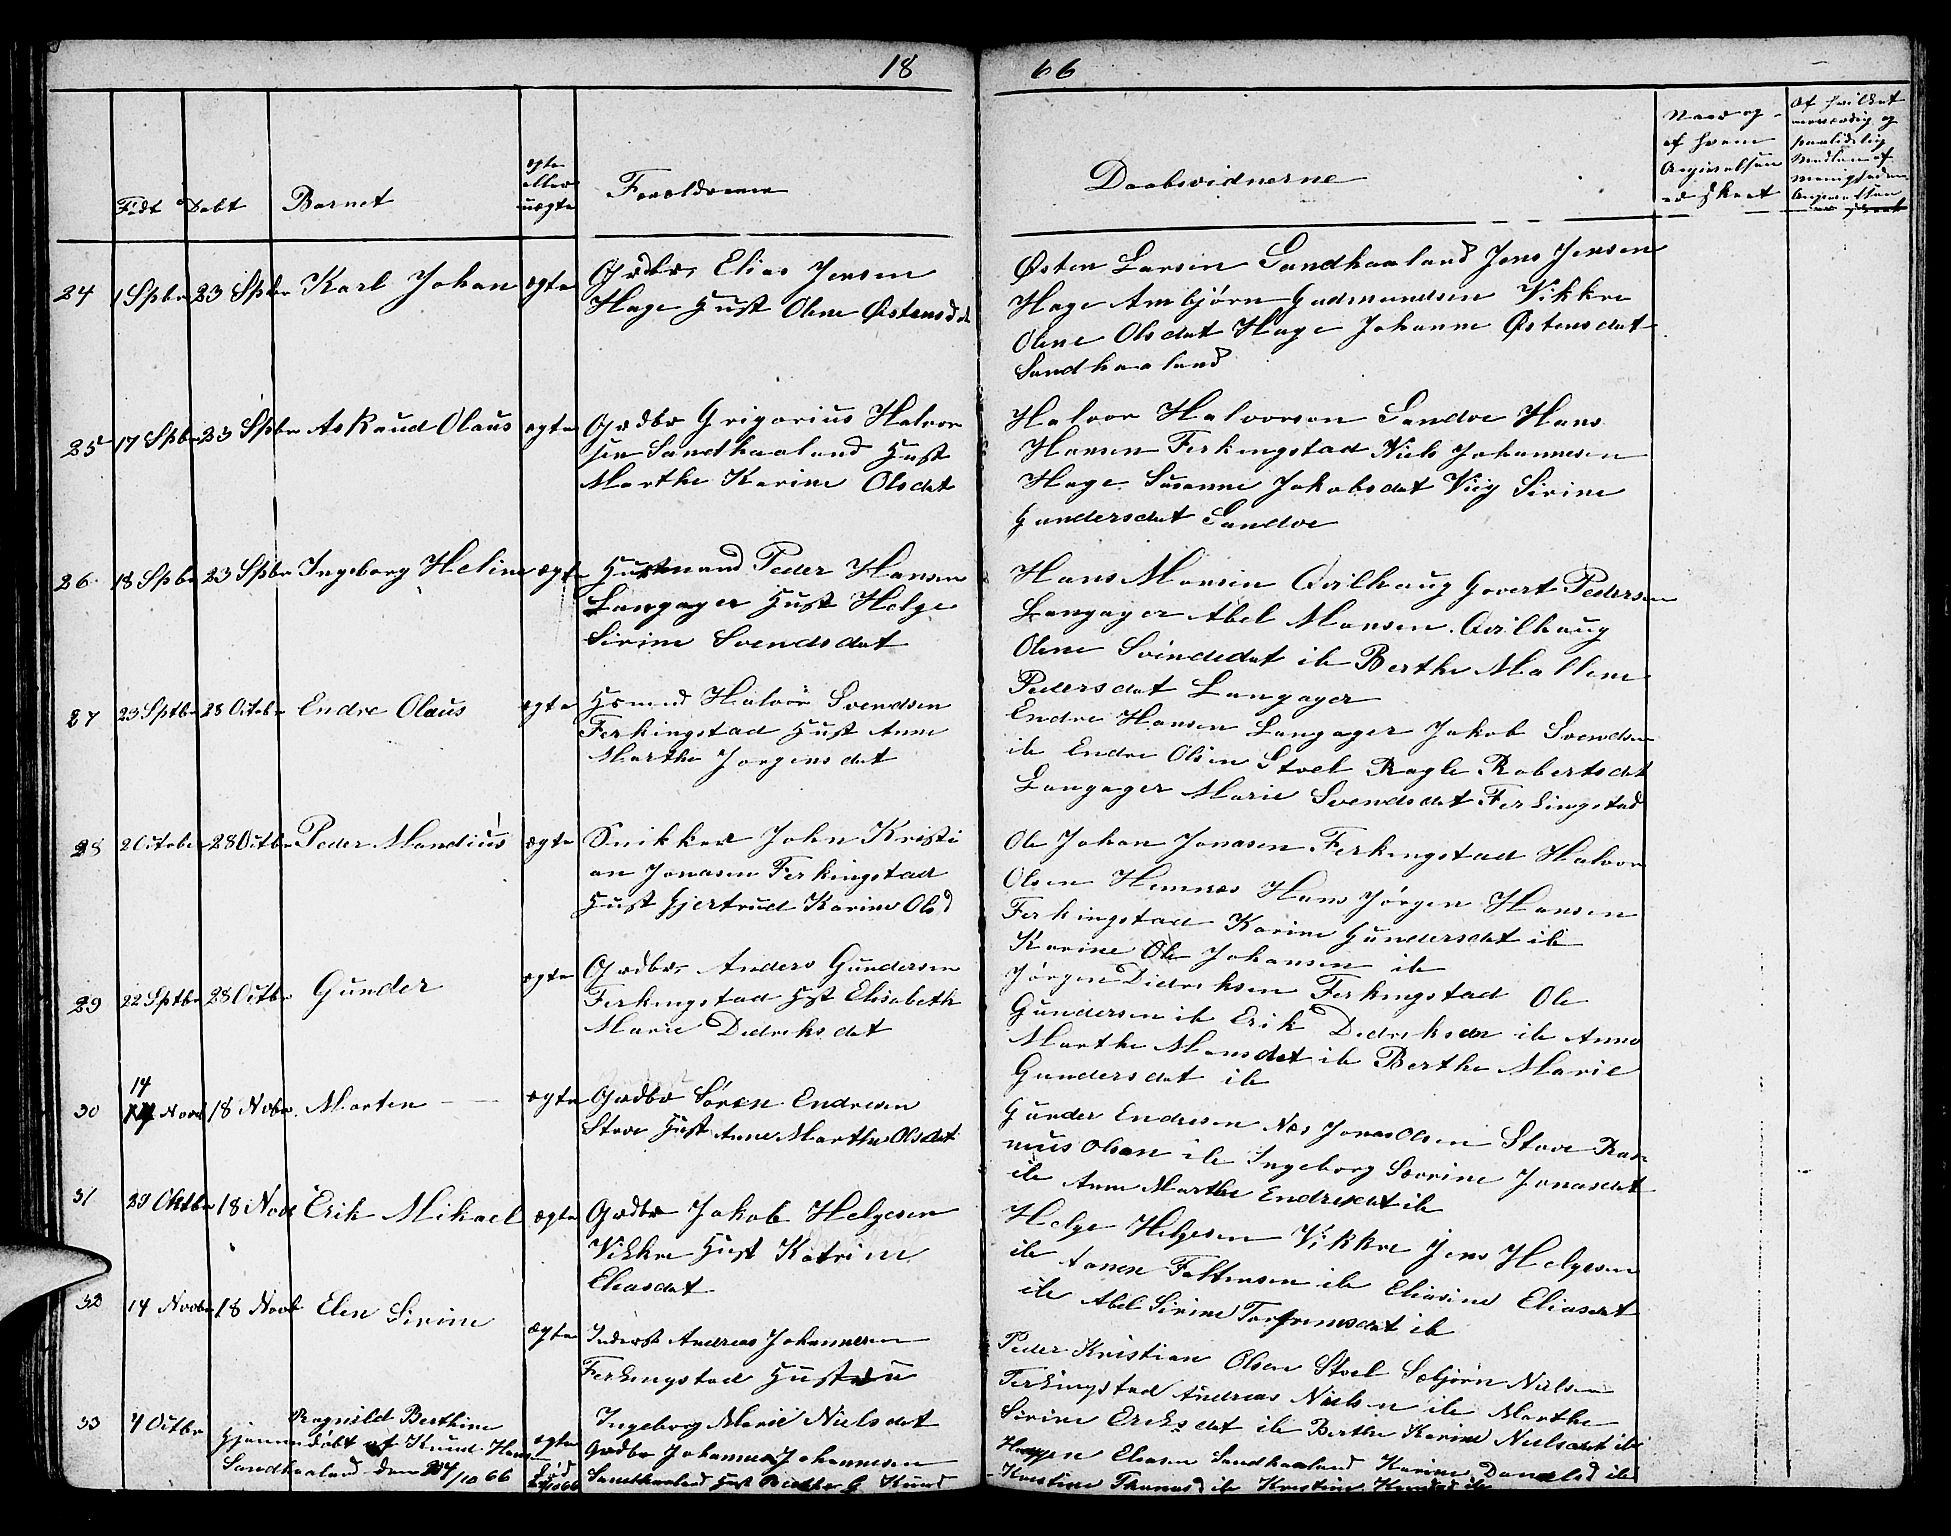 18 66
Født Døbt Barnet ægte eller uægte Forældrene Daabsvidnerne
Naar og af hvem Angivelsen er skeet
Af hvilket
paalidelig
Medlem af
Menigheden
Angivelsen
er skeet
24 1 Spbr 23 Spbr Karl Johan ægte
Grdbr. Elias Jensen
Hage Hust Olene Østensdt
Østen Larsen Sandhaaland Jens Jensen
Hage Ambjørn Gudmundsen Vikkre
Olene Olsdat Hage Johanne Østensdat
Sandhaaland
25 17 Spbr 23 Spbr Askaud Olaus ægte
Grdbr Grigorius Halvor
sen Sandhaaland Hust
Marthe Karine Olsdat
Halvor Halvorsen Sandve Hans
Hansen Ferkingstad Niels Johannesen
Hage Susanne Jakobsdat Viig Sirine
Gundersdat Sandve
26 18 Spbr 23 Spbr Ingeborg Heline ægte
Husmand Peder Hansen
Langager Hust Helge
Sirine Svendsdat
Hans Monsen Qvilhaug Govert Pedersen
Langager Abel Monsen Qvilhaug
Olene Svendsdat ib Berthe Mallene
Pedersdat Langager
27 23 Sptbr 28 Octobr Endre Olaus ægte
Hsmnd Halvor Svendsen
Ferkingstad Hust Anne
Marthe Jorgensdat
Endre Hansen Langager Jakob Svendsen
ib Endre Olsen Stoel Ragle Robertsdat
Langager Marie Svendsdat Ferkingstad
28 2 Octobr 28 Octbr Peder Mandius ægte
Snikker John Kristi
an Jonasen Ferkingstad
Hust Gjertrud Karine Olsd
Ole Johan Jonasen Ferkingstad Halvor
Olsen Hemnes Hans Jørgen Hansen
Ferkingstad Karine Gundersdat ib
Karine Ole Johansen ib
29 22 Sptbr 28 Octbr Gunder ægte
Grdbr. Anders Gundersen
Ferkingstad Hst Elisabeth
Marie Didriksdat
Jørgen Didriksen Ferkingstad Ole
Gundersen ib Erik Didriksen ib Anne
Marthe Monsdat ib Berthe Marie
Gundersdat ib
30 14 Novb 18 Nobr. Morten ægte
Grdbr Søren Endresen
Stave Hust Anne Marthe Olsdat
Gunder Endresen Nes Jonas Olsen Stave Ras
mus Olsen ib Ingeborg Severine Jonasdat
ib Anne Marthe Endresdat ib
31 29 Oktbr 18 Nobr Erik Mikael ægte
Grdbr Jakob Helgesen
Vikkre Hust Katrine
Eliasdat
Helge Helgesen Vikkre Jens Helgesen
ib Aanen Faltensen ib Eliasine Eliasdat
ib Abel Sirine Torfinnsdat ib
32 14 Novbr 18 Novb Elen Sirine ægte
Inderst Andreas Johannesen
Ferkingstad Hustru
Ingeborg Marie Nielsdat
Peder Kristian Olsen Stoel Sebjørn Nielsen
Ferkingstad Andreas Nielsen ib Marthe
Sirine Eriksdat ib Berthe Karine Nielsdat ib
33 7 Octbr Ragnild Berthine
Hjemmedøbt af Knud Hans
Sandhaaland den 24/10 66
ægte
Død
Grdbr Johannes Johannesen
Sandhaaland Hust Berthe G Knud
Haagen Eliasen Sandhaaland Karine Danielsd ib
Kristine Thomasd ib Kristine Knudsd ib